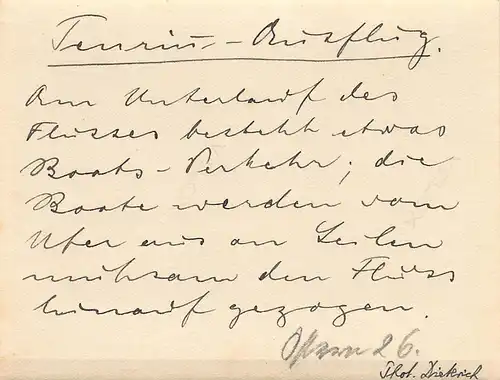 Tenriu-Ausflug.
Am Unterlauf des
Flusses besteht etwas
Boots-Verkehr; die
Boote werden vom
Ufer aus an Seilen
mühsam den Fluss
hinauf gezogen.
26.
Phot. Diekrich